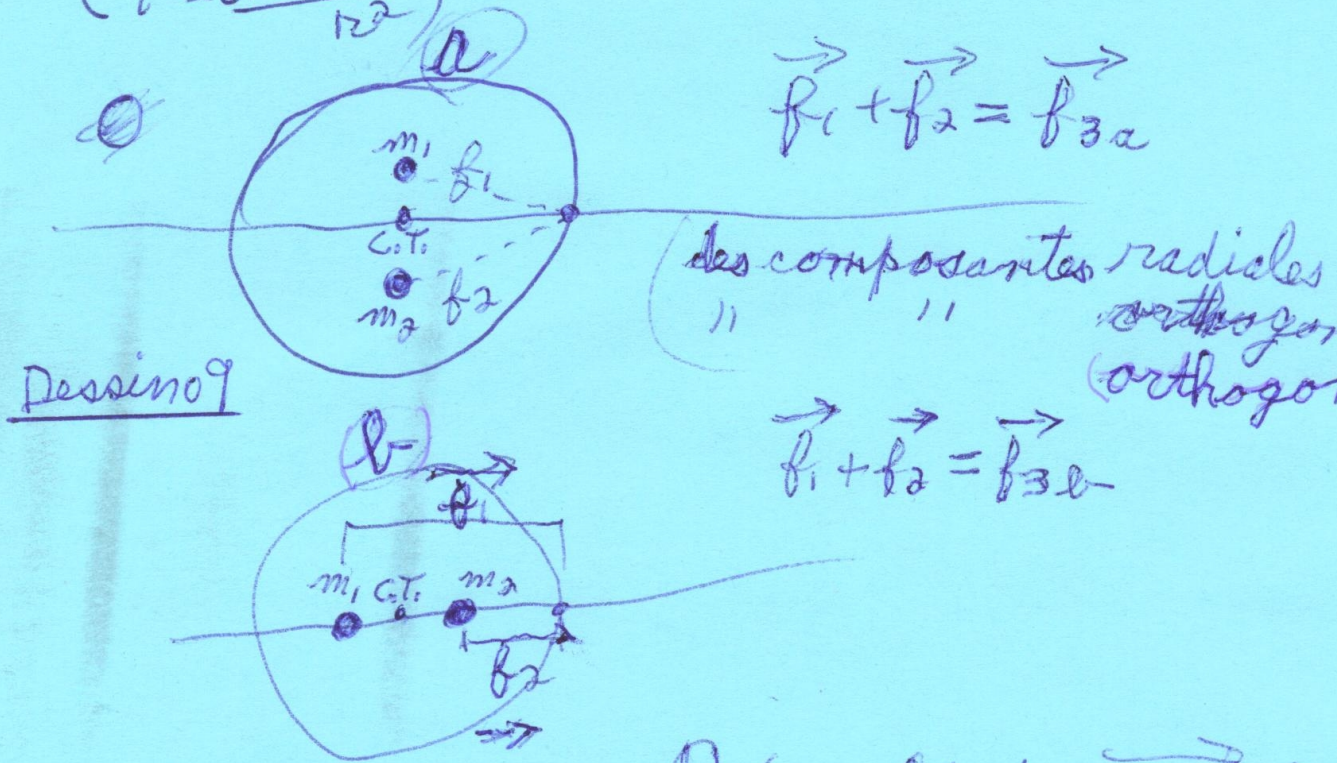 r²
a
f₁ + f₂ = f₃a
m₁
f₁
C.T.
m₂ f₂
des composantes radiales
" " orthogon
(orthogon
Dessin 9
b
f₁ + f₂ = f₃b
f₁
m₁ C.T. m₂
f₂